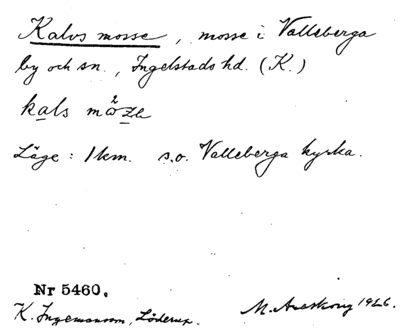 Kalvs mosse, mosse i Valleberga
by och sn., Ingelstads hd. (K.)
kals
Läge: 1 km. s.o. Valleberga kyrka.
Nr 5460.
K. Ingemansson, Löderup. M. Areskoug 1926.